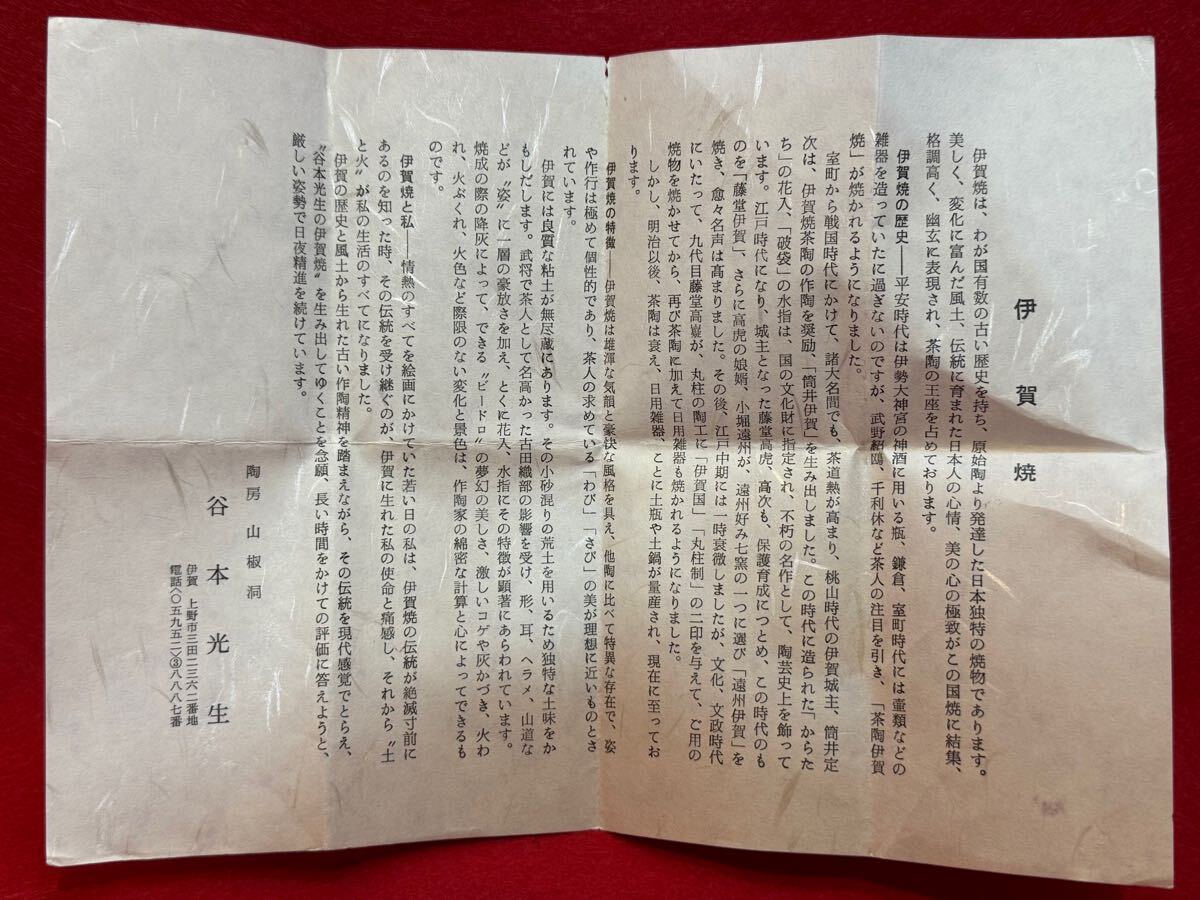 伊賀焼
伊賀焼は、わが国有数の古い歴史を持ち、原始陶より発達した日本独特の焼物であります。
美しく、変化に富んだ風土、伝統に育まれた日本人の心情、美の心の極致がこの国焼に結集、
格調高く、幽玄に表現され、茶陶の王座を占めております。
伊賀焼の歴史――平安時代は伊勢大神宮の神酒に用いる瓶、鎌倉、室町時代には壷類などの
雑器を造っていたに過ぎないのですが、武野紹鴎、千利休など茶人の注目を引き、「茶陶伊賀
焼」が焼かれるようになりました。
室町から戦国時代にかけて、諸大名間でも、茶道熱が高まり、桃山時代の伊賀城主、筒井定
次は、伊賀焼茶陶の作陶を奨励、「筒井伊賀」を生み出しました。この時代に造られた「からた
ち」の花入、「破袋」の水指は、国の文化財に指定され、不朽の名作として、陶芸史上を飾って
います。江戸時代になり、城主となった藤堂高虎、高次も、保護育成につとめ、この時代のも
のを「藤堂伊賀」、さらに高虎の娘婿、小堀遠州が、遠州好み七窯の一つに選び「遠州伊賀」を
焼き、愈々名声は高まりました。その後、江戸中期には一時衰微しましたが、文化、文政時代
にいたって、九代目藤堂高嶷が、丸柱の陶工に「伊賀国」「丸柱制」の二印を与えて、ご用の
焼物を焼かせてから、再び茶陶に加えて日用雑器も焼かれるようになりました。
しかし、明治以後、茶陶は衰え、日用雑器、ことに土瓶や土鍋が量産され、現在に至ってお
ります。
伊賀焼の特徴――伊賀焼は雄渾な気韻と豪快な風格を具え、他陶に比べて特異な存在で、姿
や作行は極めて個性的であり、茶人の求めている「わび」「さび」の美が理想に近いものとさ
れています。
伊賀には良質な粘土が無尽蔵にあります。その小砂混りの荒土を用いるため独特な土味をか
もしだします。武将で茶人として名高かった古田織部の影響を受け、形、耳、ヘラメ、山道な
どが〝姿〟に一層の豪放さを加え、とくに花入、水指にその特徴が顕著にあらわれています。
焼成の際の降灰によって、できる〝ビードロ〟の夢幻の美しさ、激しいコゲや灰かづき、火わ
れ、火ぶくれ、火色など際限のない変化と景色は、作陶家の綿密な計算と心によってできるも
のです。
伊賀焼と私――情熱のすべてを絵画にかけていた若い日の私は、伊賀焼の伝統が絶滅寸前に
あるのを知った時、その伝統を受け継ぐのが、伊賀に生れた私の使命と痛感し、それから〝土
と火〟が私の生活のすべてになりました。
伊賀の歴史と風土から生れた古い作陶精神を踏まえながら、その伝統を現代感覚でとらえ、
〝谷本光生の伊賀焼〟を生み出してゆくことを念願、長い時間をかけての評価に答えようと、
厳しい姿勢で日夜精進を続けています。
陶房 山椒洞
谷本光生
伊賀 上野市三田二三六二番地
電話〈〇五九五二〉③八八八七番